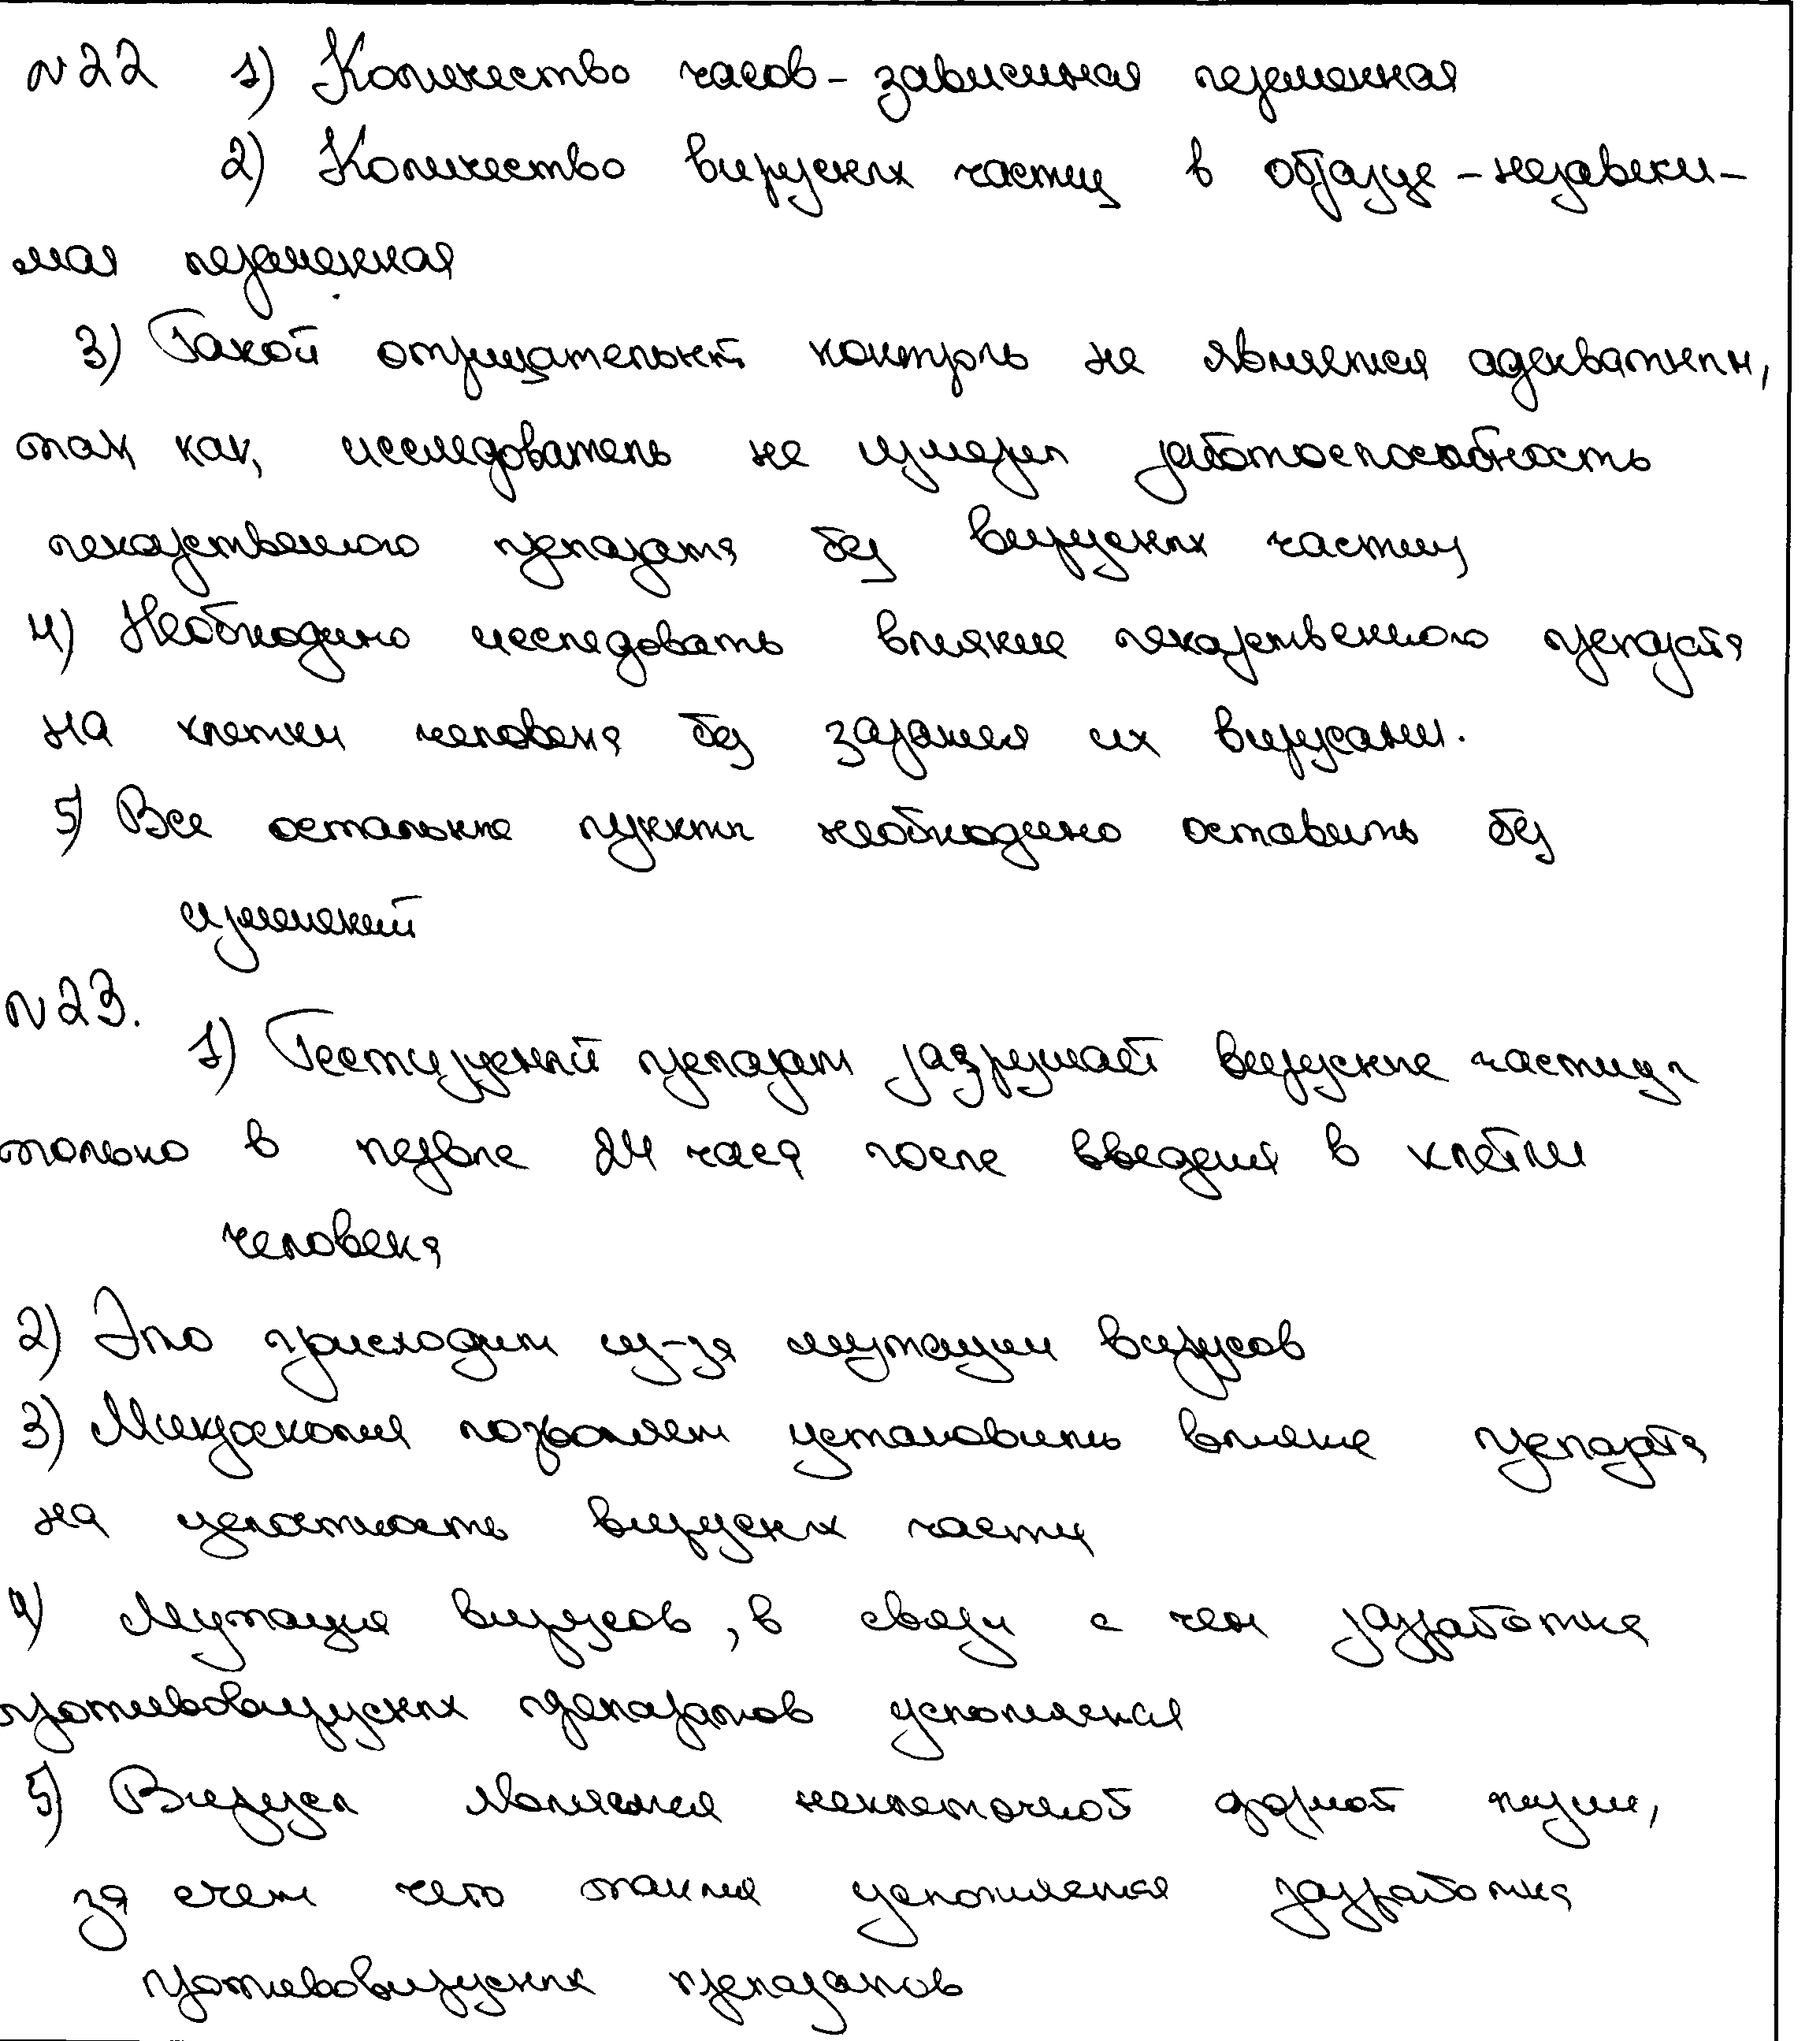 №22 1) Количество часов - зависимая переменная
2) Количество вирусных частиц в образце - независи-
мая переменная
3) Такой отрицательный контроль не является адекватным,
так как, исследователь не измерял работоспособность
лекарственного препарата без вирусных частиц
4) Необходимо исследовать влияние лекарственного препарата
на клетки человека без заражения их вирусами.
5) Все остальные пункты необходимо оставить без
изменений
№23.
1) Тестируемый препарат разрушает вирусные частицы
только в первые 24 часа после введения в клетки
человека
2) Это происходит из-за мутации вирусов
3) Микроскопия позволяет установить влияние препарата
на целостность вирусных частиц
4) Мутация вирусов, в связи с чем разработка
противовирусных препаратов усложняется
5) Вирусы являются неклеточной формой жизни,
за счет чего также усложняется разработка
противовирусных препаратов